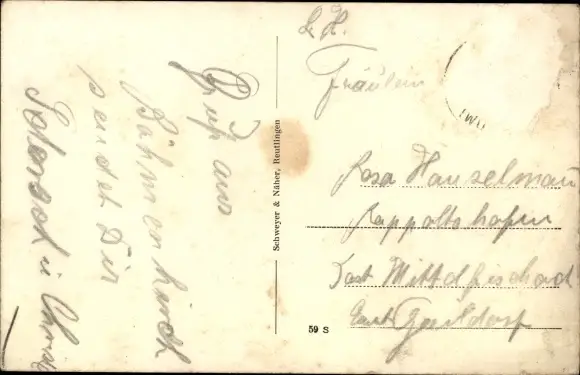 Gruß aus
Bühmenkirch
sendet Dir
Schweyer & Näher, Reutlingen
59 S
Fräulein
Rosa Hauselmann
Rappoltshofen
Post Mittelfischach
Gaildorf